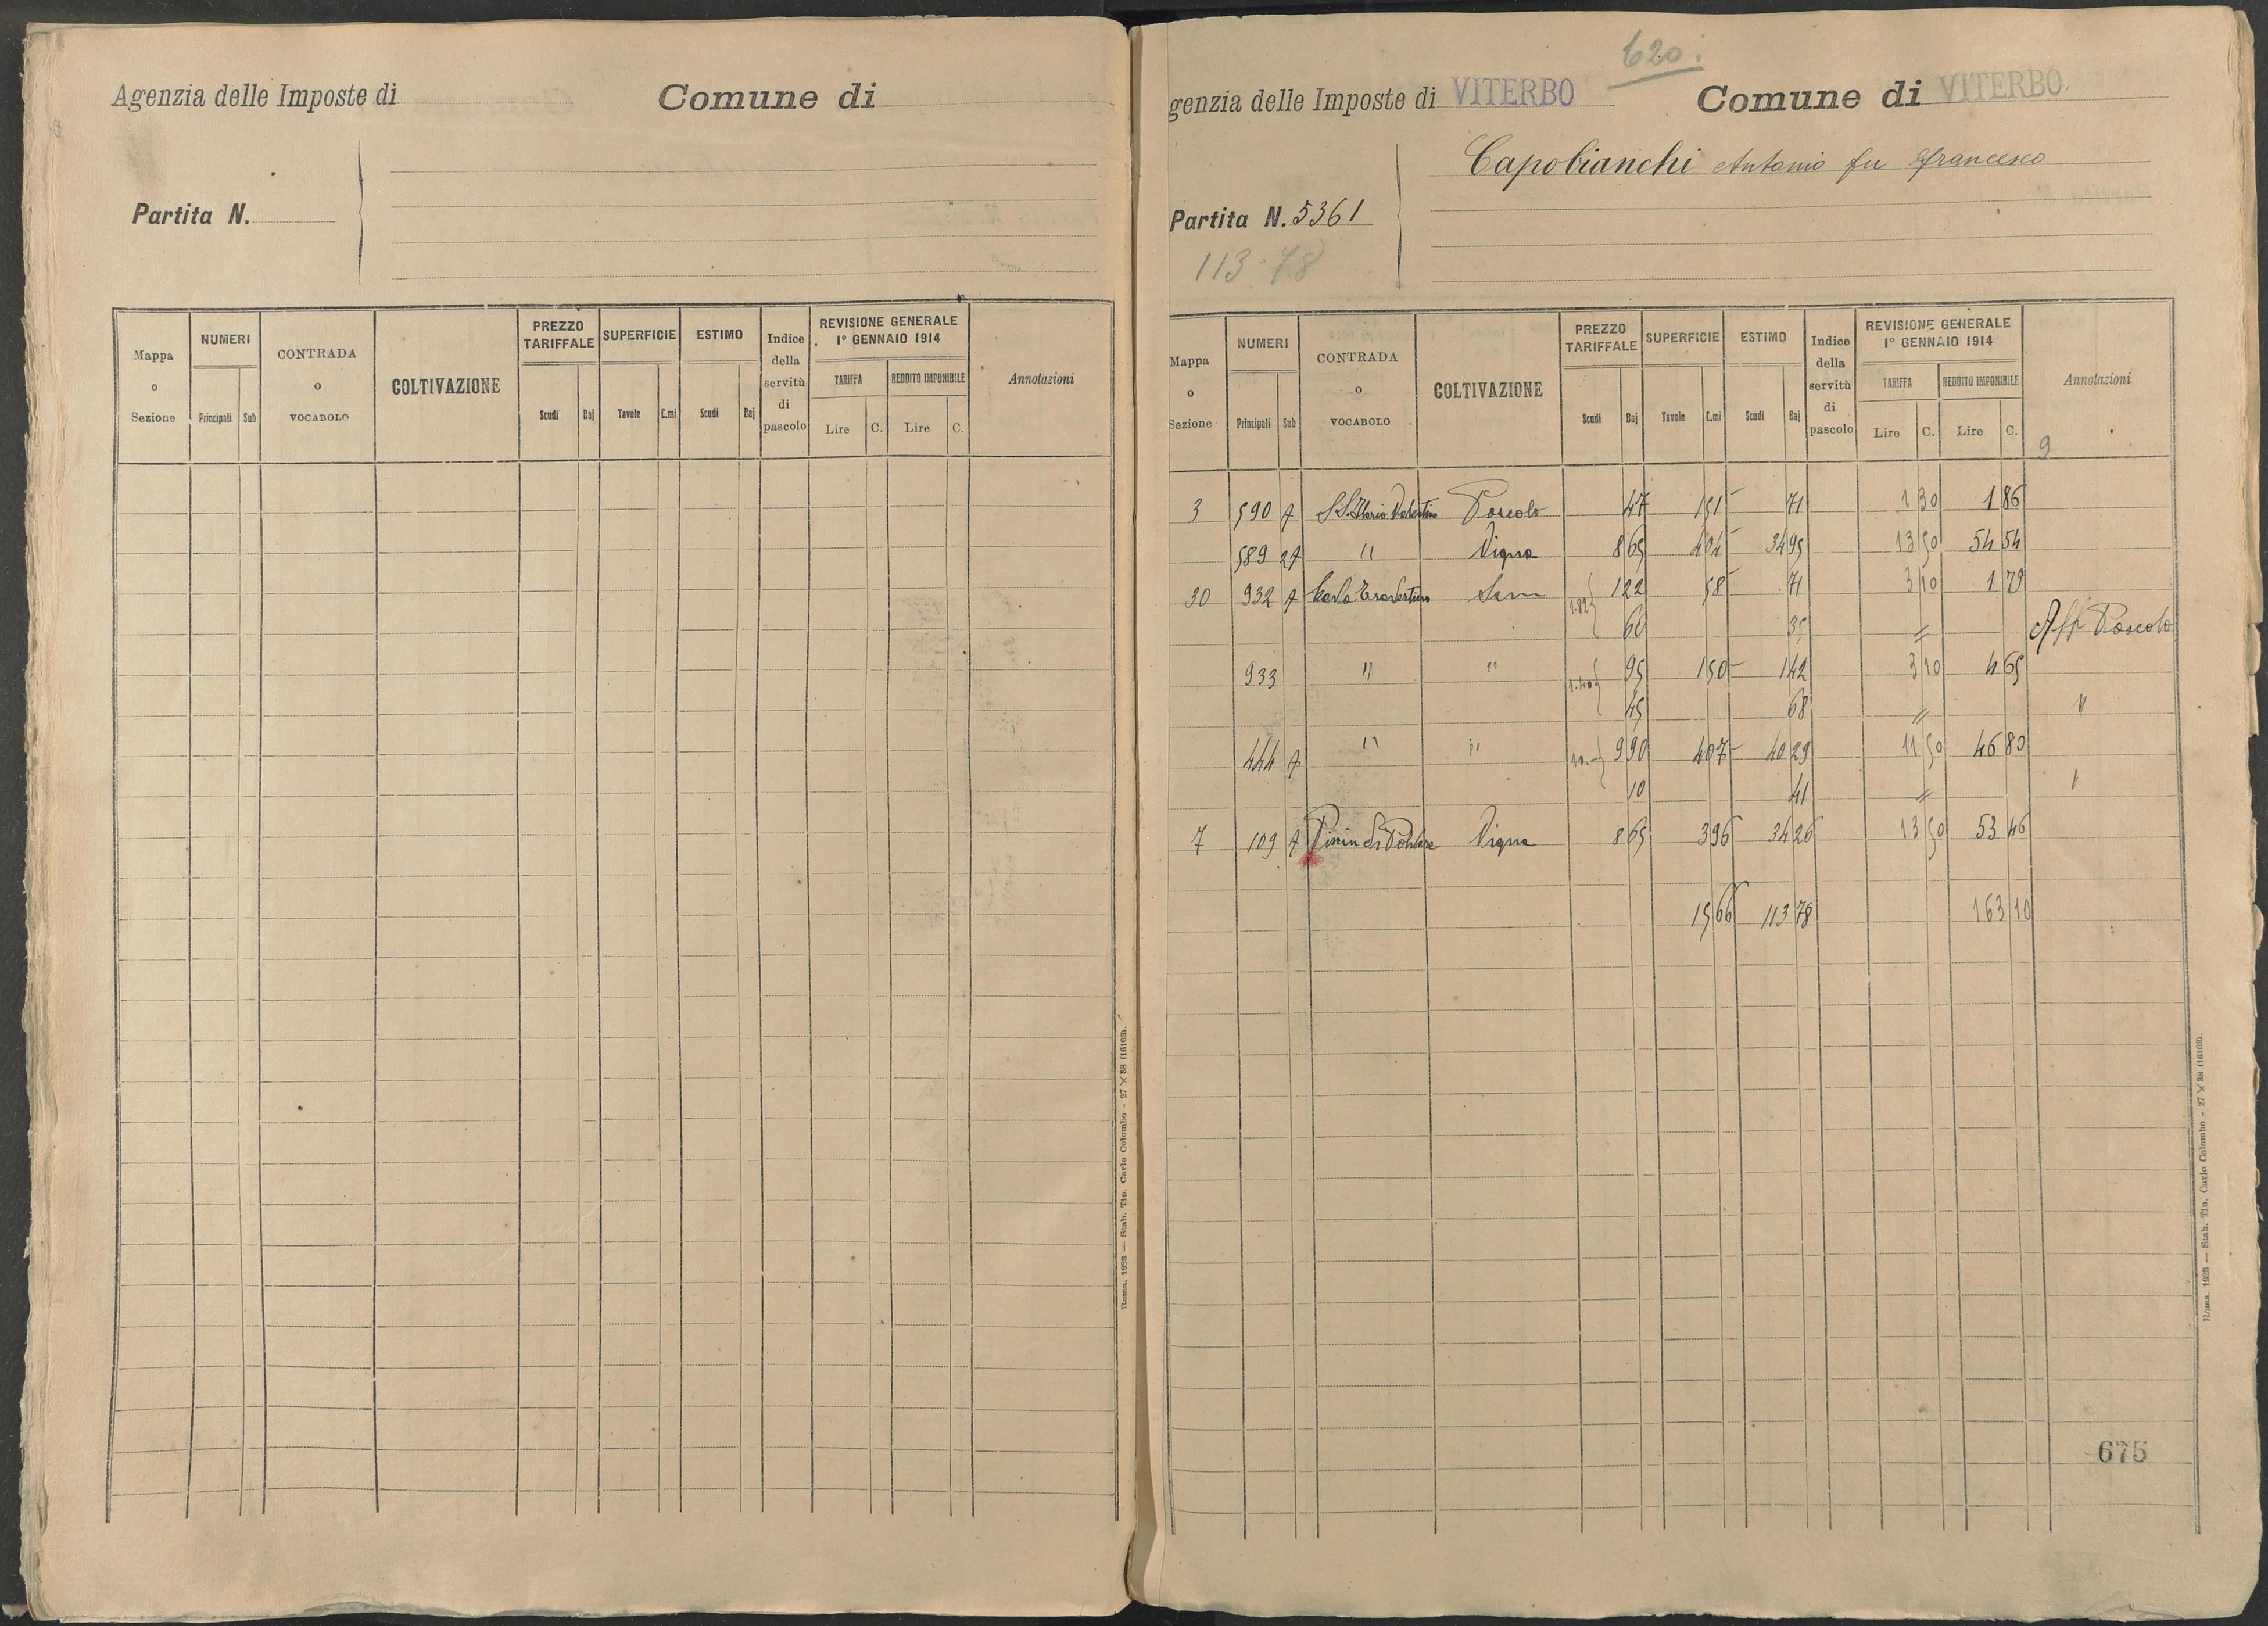 Agenzia delle Imposte di
Comune di
Partita N.
Mappa o Sezione
NUMERI
Principali
Sub
CONTRADA o VOCABOLO
COLTIVAZIONE
PREZZO TARIFFALE
Scudi
Baj
SUPERFICIE
Tavole
C.mi
ESTIMO
Scudi
Baj
Indice della servitù di pascolo
REVISIONE GENERALE
1° GENNAIO 1914
TARIFFA
REDDITO IMPONIBILE
Lire
C.
Lire
C.
Annotazioni
Roma, 1923 — Stab. Tip. Carlo Colombo - 27 X 88 (16163).
620.
genzia delle Imposte di VITERBO
Comune di VITERBO
Capobianchi Antonio fu Francesco
Partita N. 5361
113.78
Mappa o Sezione
NUMERI
Principali
Sub
CONTRADA o VOCABOLO
COLTIVAZIONE
PREZZO TARIFFALE
Scudi
Baj
SUPERFICIE
Tavole
C.mi
ESTIMO
Scudi
Baj
Indice della servitù di pascolo
REVISIONE GENERALE
1° GENNAIO 1914
TARIFFA
REDDITO IMPONIBILE
Lire
C.
Lire
C.
Annotazioni
9
3 590 Pascolo 47 151 71 1 30 1 86
589 " Vigna 8 65 404 34 95 13 50 54 54
30 932 Sem 1.82 1 22 58 71 3 10 1 79
60 35 " Aff Pascolo
933 " " 1.40 95 150 1 42 3 10 4 65
45 68 " "
444 " " 10.- 9 90 407 40 29 11 50 46 80
10 41 " "
7 109 Vigna 8 65 396 34 26 13 50 53 46
15 66 113 78 163 10
675
Roma, 1923 — Stab. Tip. Carlo Colombo - 27 X 88 (16163).